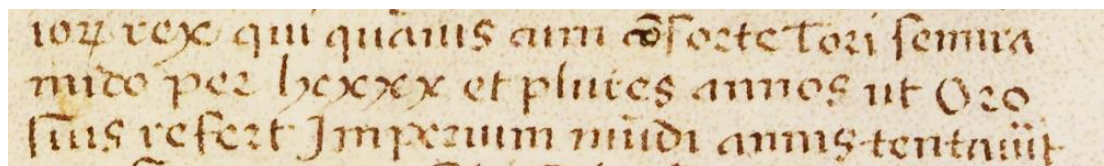 ioꝝ rex qui quāuis cum cōsorte Tori semira
mide per lxxxx et plures annos ut Oro
sius refert Imperium mūdi armis tentauit